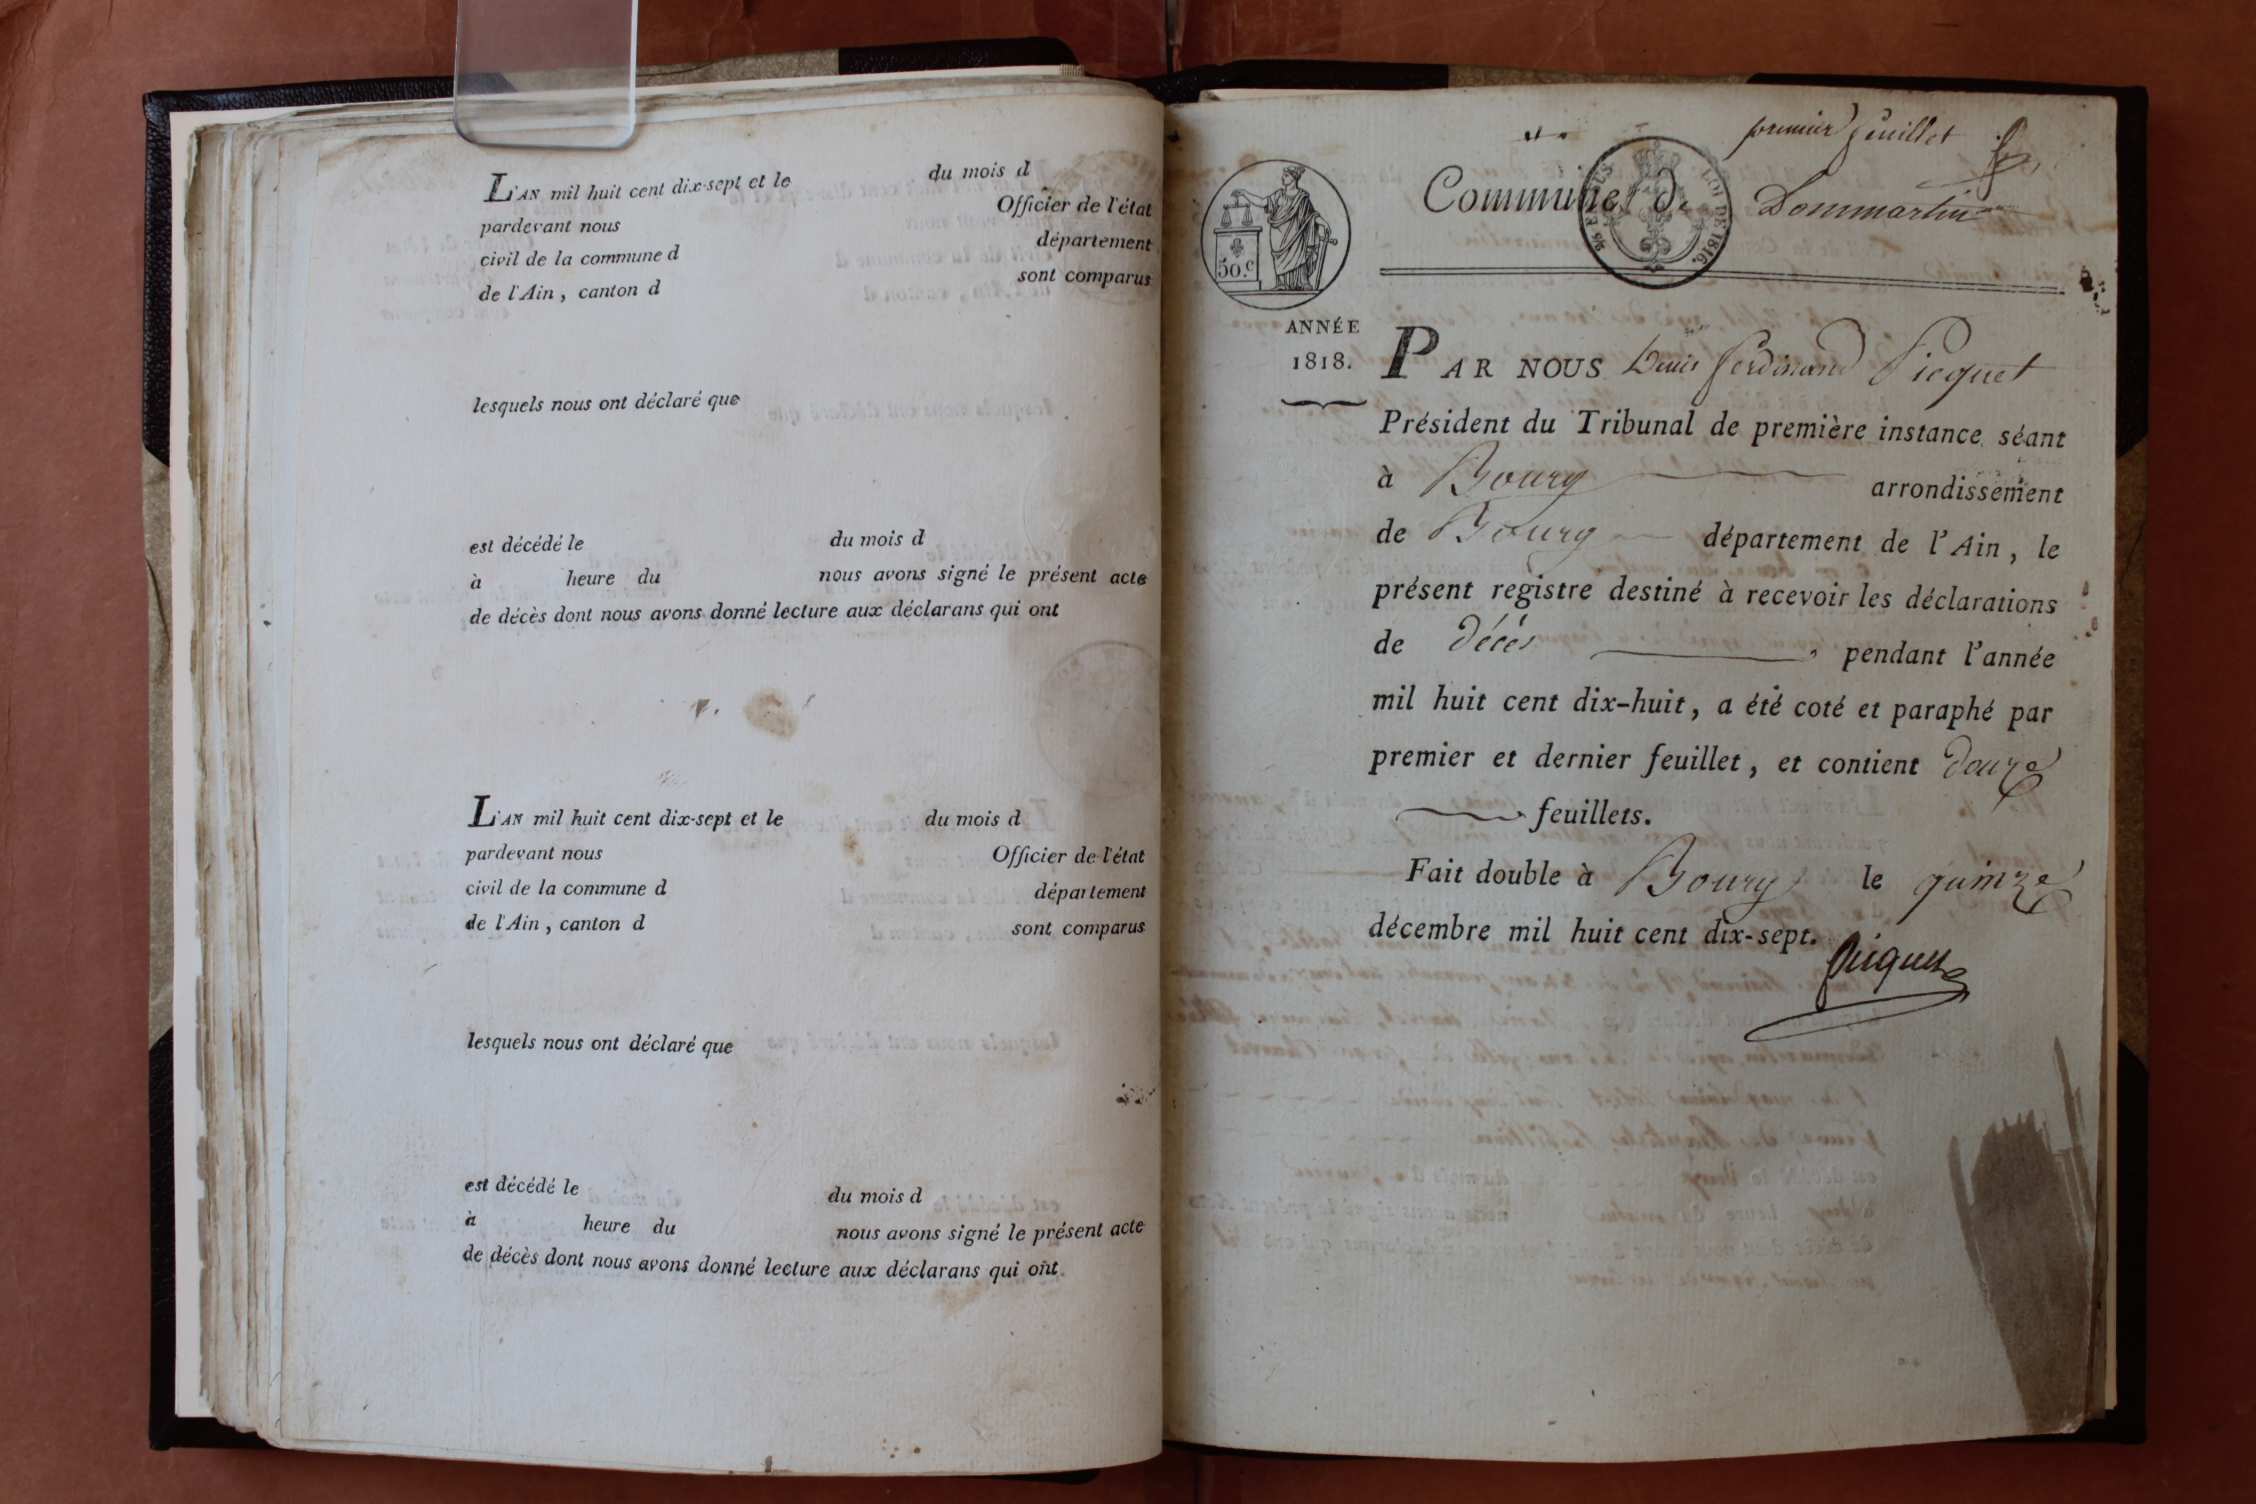 L'AN mil huit cent dix-sept et le du mois d
pardevant nous Officier de l'état
civil de la commune d département
de l'Ain, canton d sont comparus
lesquels nous ont déclaré que
est décédé le du mois d
à heure du nous avons signé le présent acte
de décès dont nous avons donné lecture aux déclarans qui ont
L'AN mil huit cent dix-sept et le du mois d
pardevant nous Officier de l'état
civil de la commune d département
de l'Ain, canton d sont comparus
lesquels nous ont déclaré que
est décédé le du mois d
à heure du nous avons signé le présent acte
de décès dont nous avons donné lecture aux déclarans qui ont
premier feuillet
Commune de Dommartin
50.c
LOI DE 1816.
ANNÉE
1818.
PAR NOUS Louis ferdinand Picquet
Président du Tribunal de première instance séant
à Bourg arrondissement
de Bourg département de l'Ain, le
présent registre destiné à recevoir les déclarations
de décès, pendant l'année
mil huit cent dix-huit, a été coté et paraphé par
premier et dernier feuillet, et contient douze
feuillets.
Fait double à Bourg le quinze
décembre mil huit cent dix-sept.
Picquet